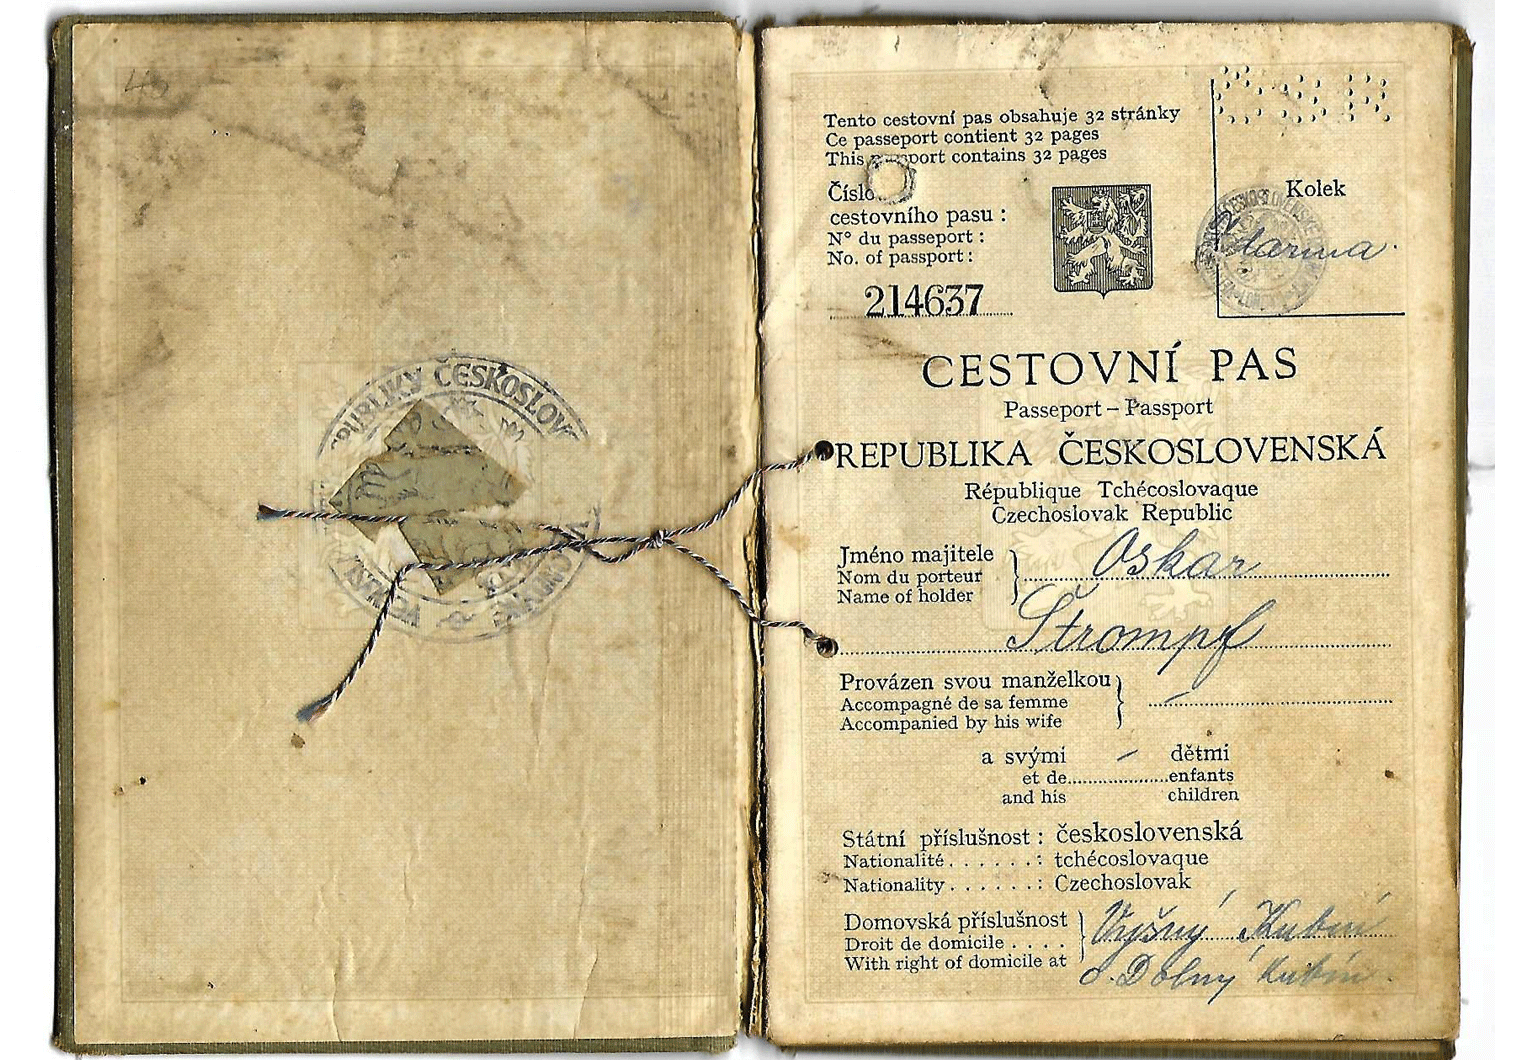 40
REPUBLIKY ČESKOSLOV
Tento cestovní pas obsahuje 32 stránky
Ce passeport contient 32 pages
This passport contains 32 pages
Číslo
cestovního pasu :
N° du passeport :
No. of passport :
214637
ČSR
Kolek
Zdarma
CESTOVNÍ PAS
Passeport – Passport
REPUBLIKA ČESKOSLOVENSKÁ
République Tchécoslovaque
Czechoslovak Republic
Jméno majitele
Nom du porteur
Name of holder
Oskar
Štrompf
Provázen svou manželkou
Accompagné de sa femme
Accompanied by his wife
–
a svými – dětmi
et de....................enfants
and his children
Státní příslušnost : československá
Nationalité . . . . . . : tchécoslovaque
Nationality . . . . . . : Czechoslovak
Domovská příslušnost
Droit de domicile . . . .
With right of domicile at
Vyšný Kubín
o. Dolný Kubín